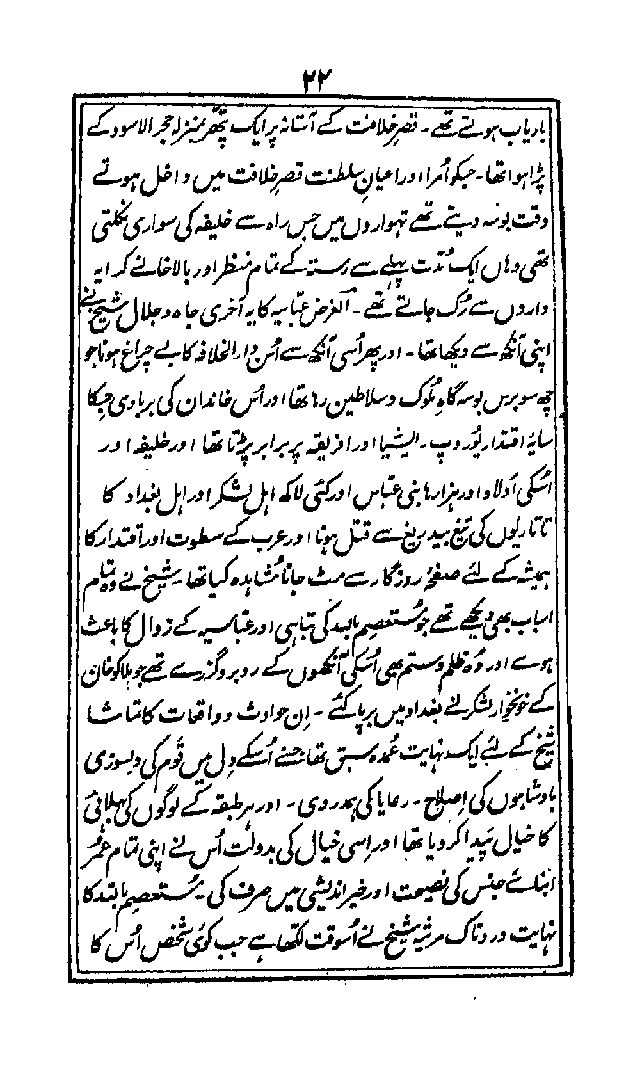 ۲۲
باریاب ہوتے تھے۔ قصر خلافت کے آستانہ پر ایک پتھر بمنزلہ حجر الاسود کے
پڑا ہوا تھا۔ جسکو اُمرا اور اعیانِ سلطنت قصرِ خلافت میں داخل ہوتے
وقت بوسہ دیتے تھے تہواروں میں جس راہ سے خلیفہ کی سواری نکلتی
تھی وہاں ایک مُدت پہلے سے رستہ کے تمام منظر اور بالاخانے کرایہ
داروں سے رُک جاتے تھے۔ الغرض عباسیہ کا یہ آخری جاہ و جلال شیخ نے
اپنی آنکھ سے دیکھا تھا۔ اور پھر اُسی آنکھ سے اُس دار الخلافہ کا بے چراغ ہونا جو
چھ سو برس بوسہ گاہِ ملوک و سلاطین رہا تھا اور اُس خاندان کی بربادی جسکا
سایۂ اقتدار یوروپ۔ ایشیا اور افریقہ پر برابر پڑتا تھا اور خلیفہ اور
اُسکی اَولاد اور ہزارہا بنی عباس اور کئی لاکھ اہلِ لشکر اور اہلِ بغداد کا
تاتاریوں کی تیغِ بیدریغ سے قتل ہونا اور عرب کے سطوت اور اقتدار کا
ہمیشہ کے لئے صفحۂ روزگار سے مٹ جانا مُشاہدہ کیا تھا۔ شیخ نے وہ تمام
اسباب بھی دیکھے تھے جو مُستعصم باللہ کی تباہی اور عباسیہ کے زوال کا باعث
ہوے اور وُہ ظلم و ستم بھی اُسکی آنکھوں کے روبرو گزرے تھے جو ہلاکو خان
کے خونخوار لشکر نے بغداد میں برپا کئے۔ اِن حوادث و واقعات کا تماشا
شیخ کے لئے ایک نہایت عُمدہ سبق تھا جسنے اُسکے دِل میں قَوم کی دلسوزی
بادشاہوں کی اِصلاح۔ رعایا کی ہمدردی۔ اور ہر طبقہ کے لوگوں کی بھلائی
کا خیال پَیدا کر دیا تھا اور اِسی خیال کی بدولت اُس نے اپنی تمام عمر
ابنائے جنس کی نصیحت اور خیر اندیشی میں صرف کی۔ مُستعصم باللہ کا
نہایت دردناک مرثیہ شیخ نے اُسوقت لکھا ہے جب کوئی شخص اُس کا